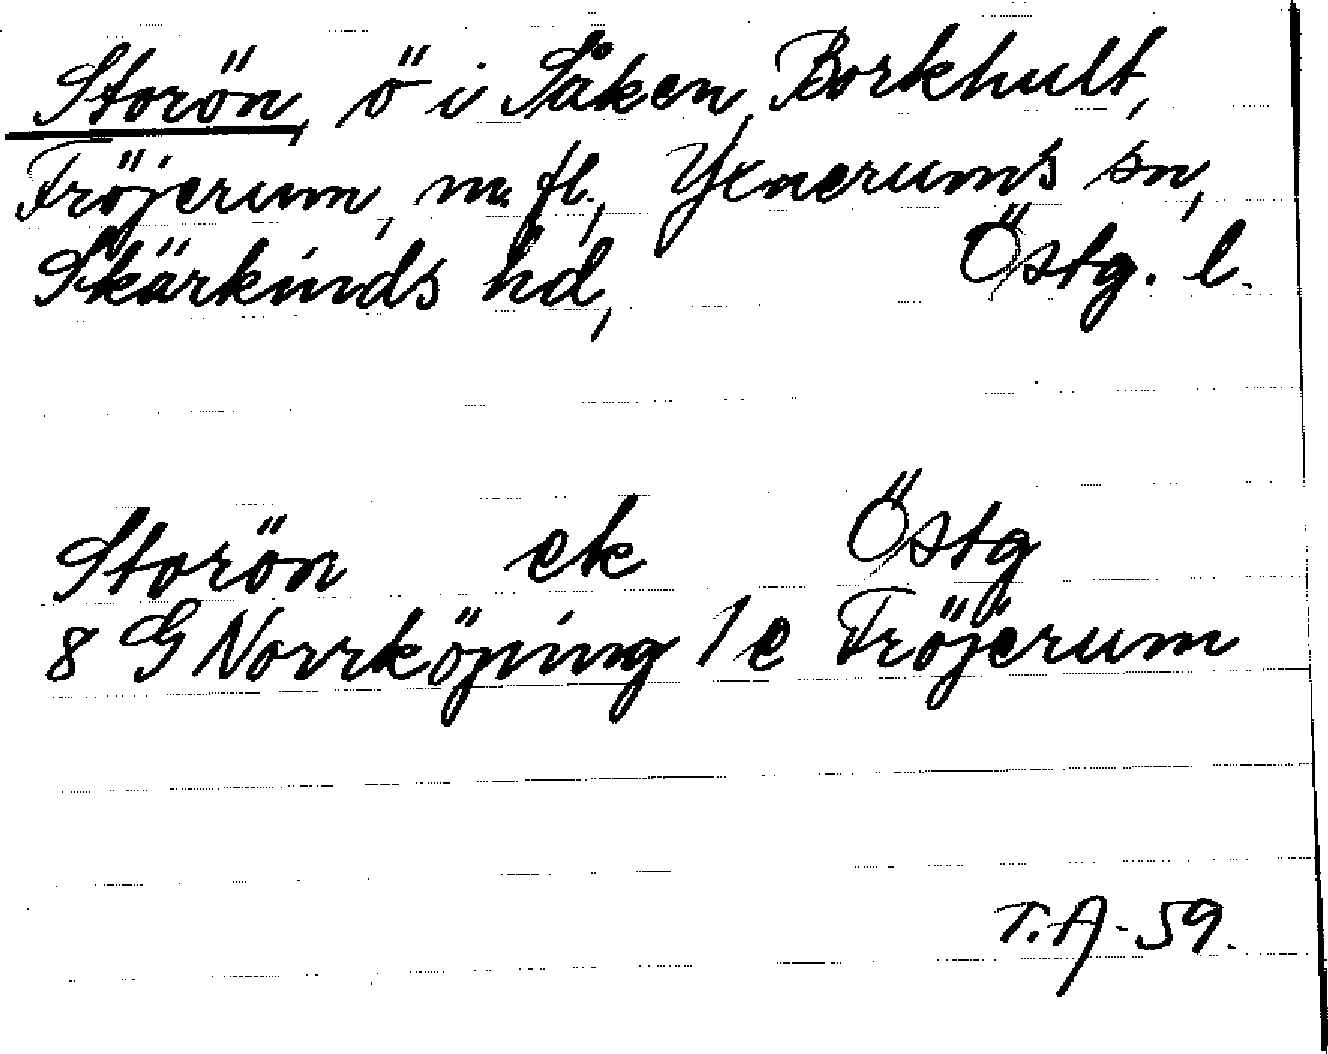 Storön, ö i Såken, Borkhult,
Fröjerum, m. fl., Yxnerums sn,
Skärkinds hd, Östg. l.
Storön ek Östg
8 G Norrköping 1 e Fröjerum
T.A-59.